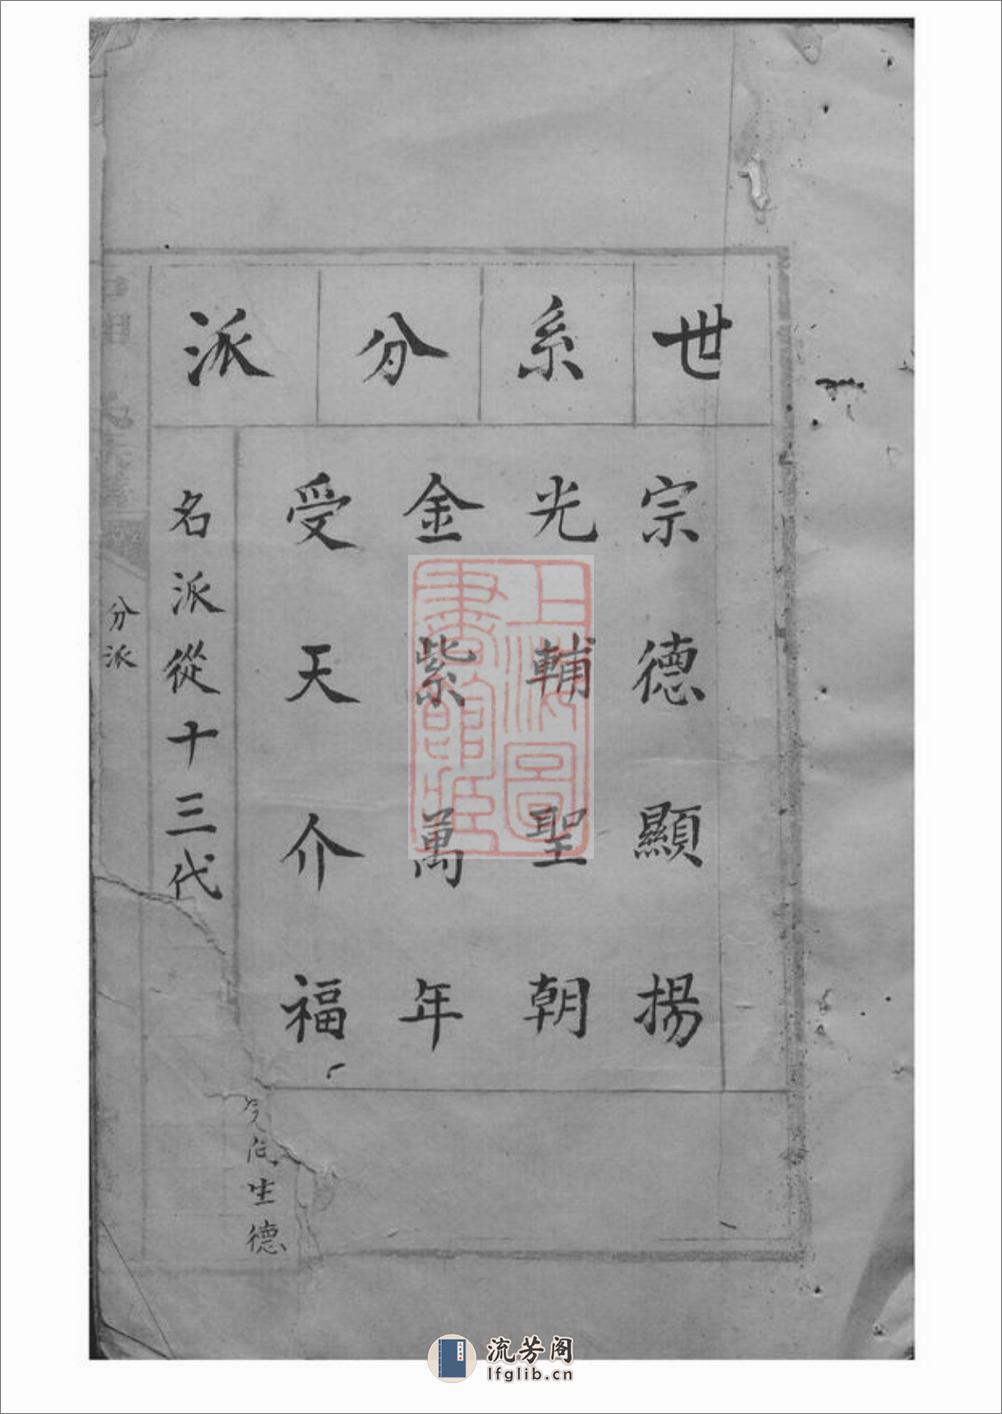 世系分派
宗德顯揚
光輔聖朝
金紫萬年
受天介福
名派從十三代
分派
氏生德
上海圖書館藏
流芳阁
lfglib.cn